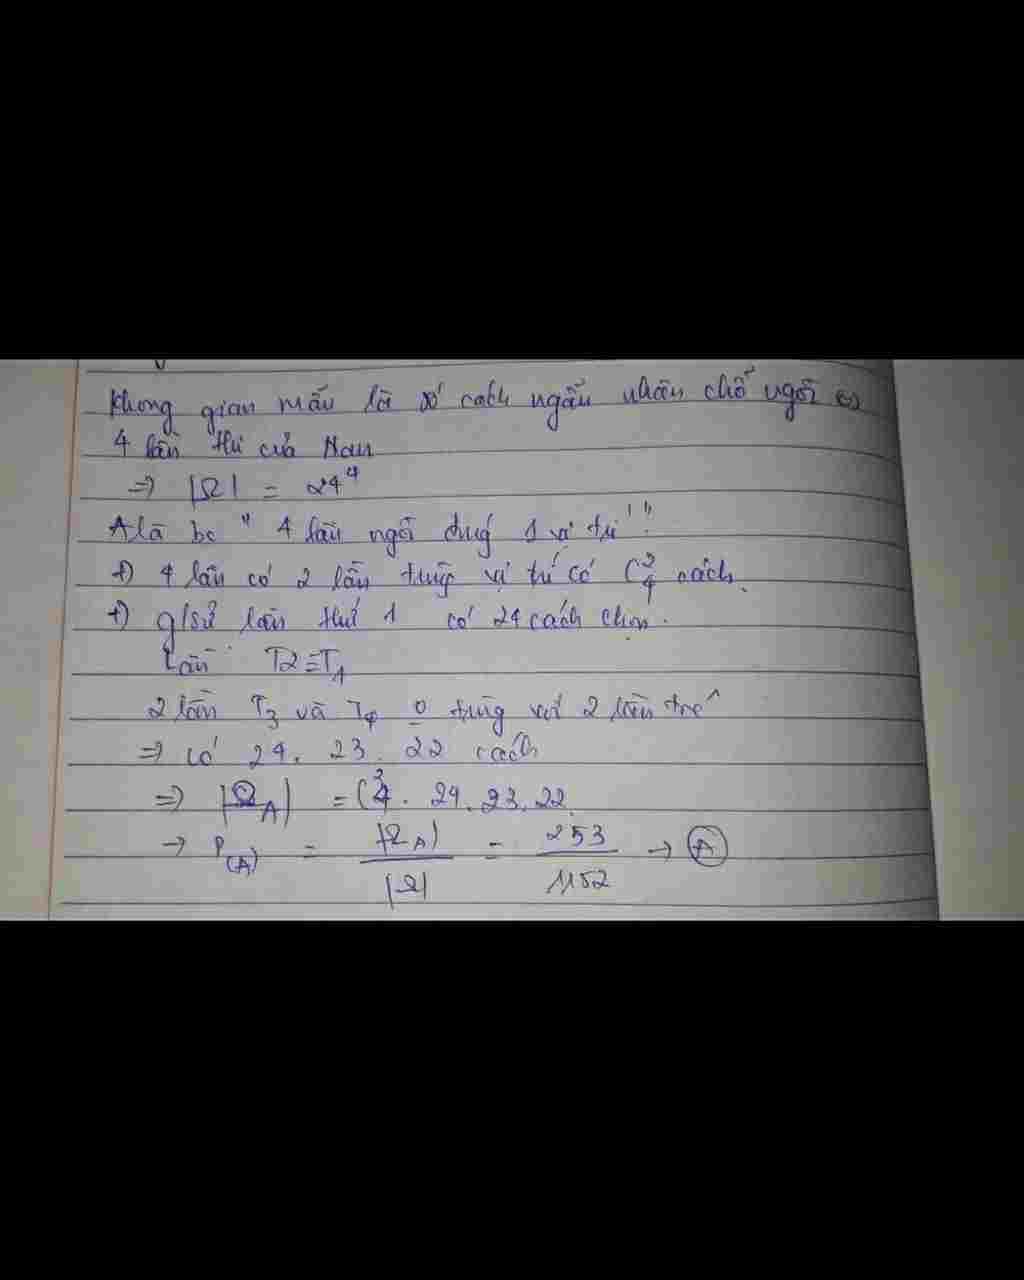 Không gian mẫu là số cách ngẫu nhiên chỗ ngồi
4 lần thi của Nam
=> |Ω| = 24⁴
A là bc " 4 lần ngồi đúng 1 vị trí "
+) 4 lần có 2 lần trùng vị trí có C²₄ cách.
+) g/sử lần thứ 1 có 24 cách chọn.
Lần T2 ≡ T1
2 lần T3 và T4 0 trùng với 2 lần trc
=> có 24. 23. 22 cách
=> |Ω_A| = C²₄. 24. 23. 22
→ P(A) = |Ω_A| / |Ω| = 253 / 1152 → A